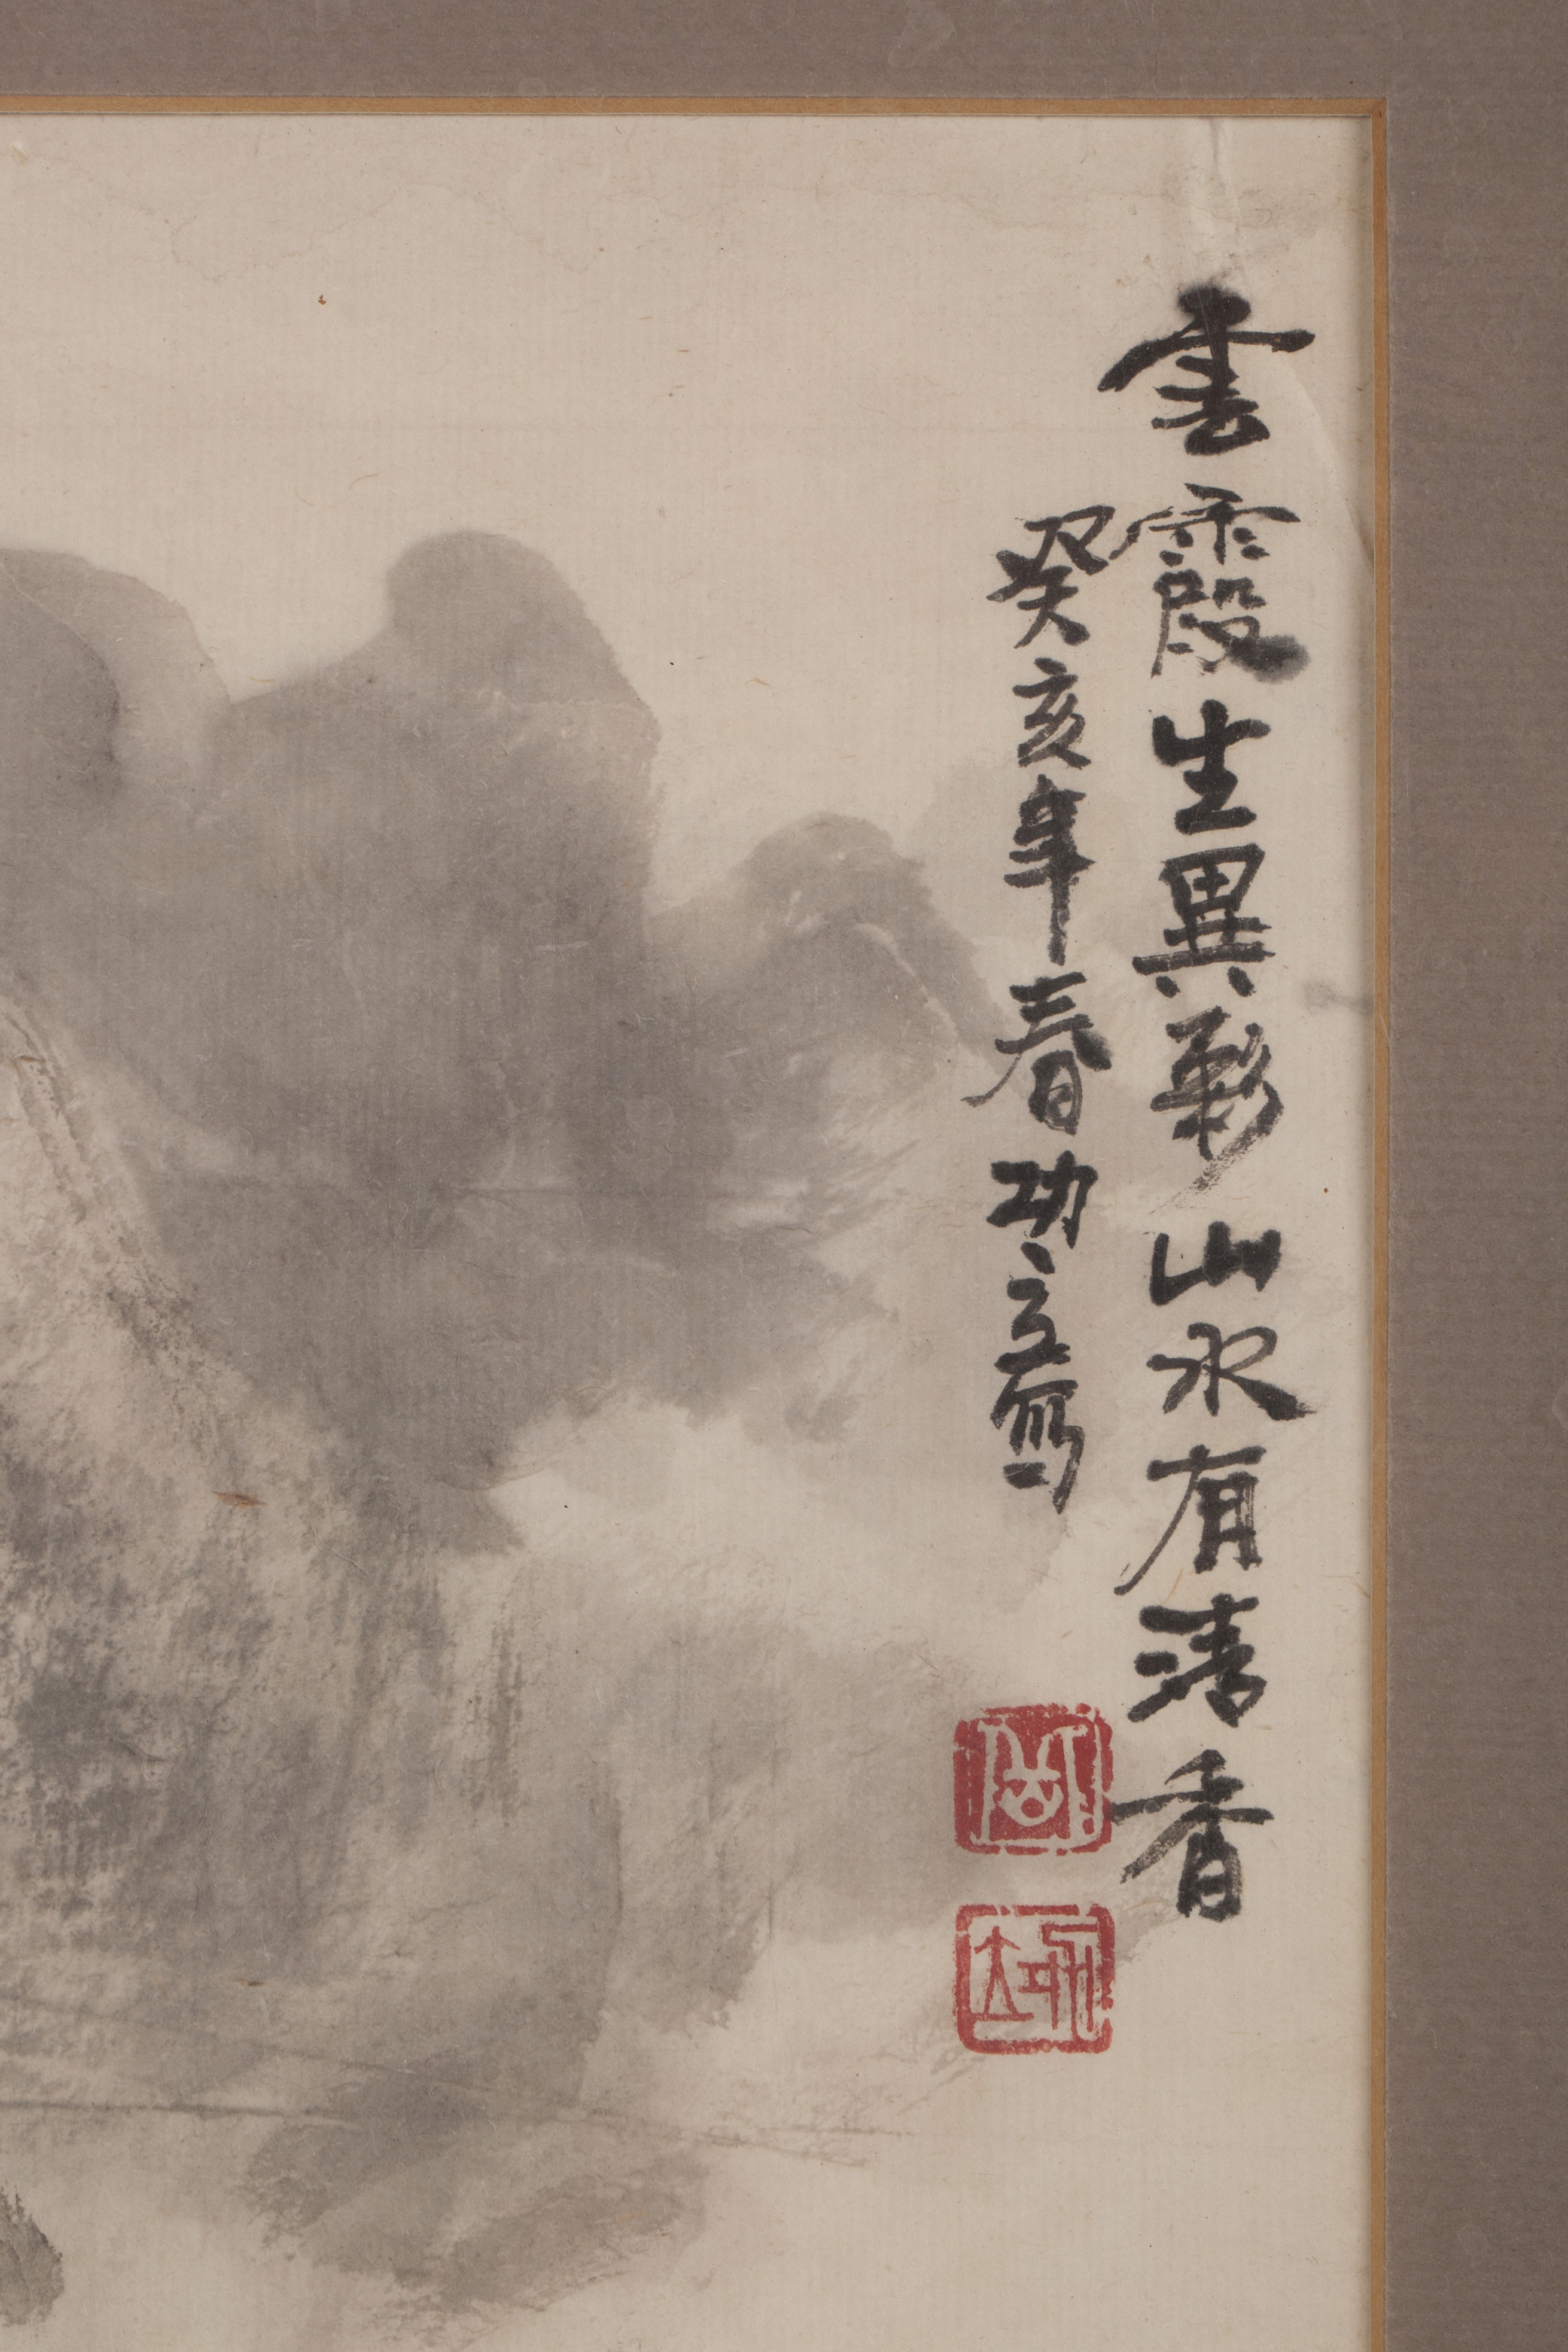 雲霞生異彩山水有清香
癸亥年春功立寫